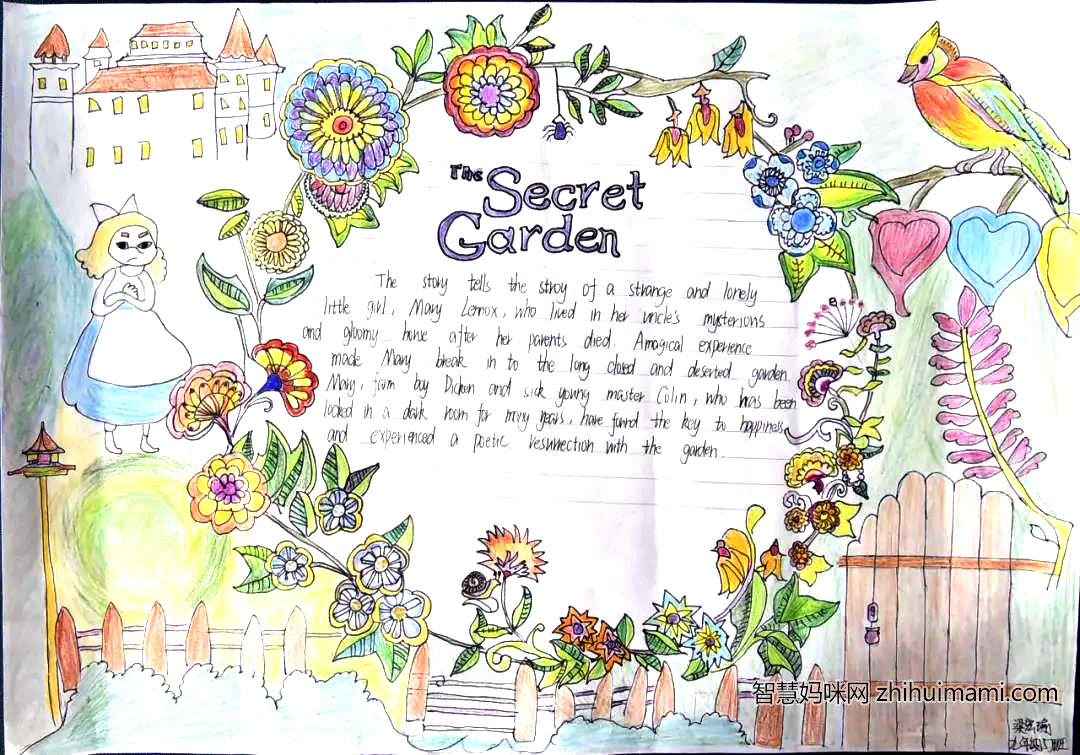 The Secret
Garden
The story tells the stroy of a strange and lonely
little girl, Mary Lennox, who lived in her uncle's mysterious
and gloomy house after her parents died. Amagical experience
made Mary break in to the long closed and deserted garden.
Mary, farm boy Dicken and sick young master Colin, who has been
locked in a dark room for many years, have found the key to happiness
and experienced a poetic resurrection with the garden.
智慧妈咪网 zhihuimami.com